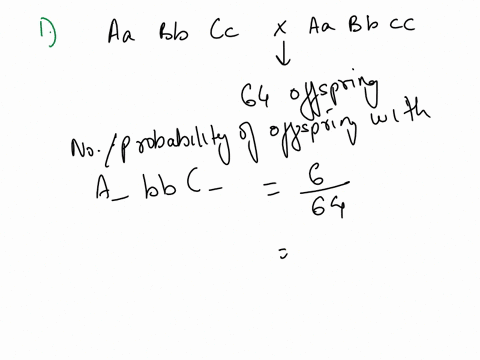 1) Aa Bb Cc x Aa Bb cc
↓
64 offspring
No./probability of offspring with
A_ bb C_ = 6/64
=